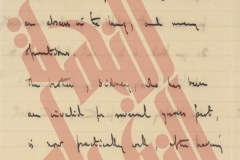 an abscess in the lung, and many
operations.
His brother, Sidney, who has been
an invalid for several years past,
is now practically well, after having